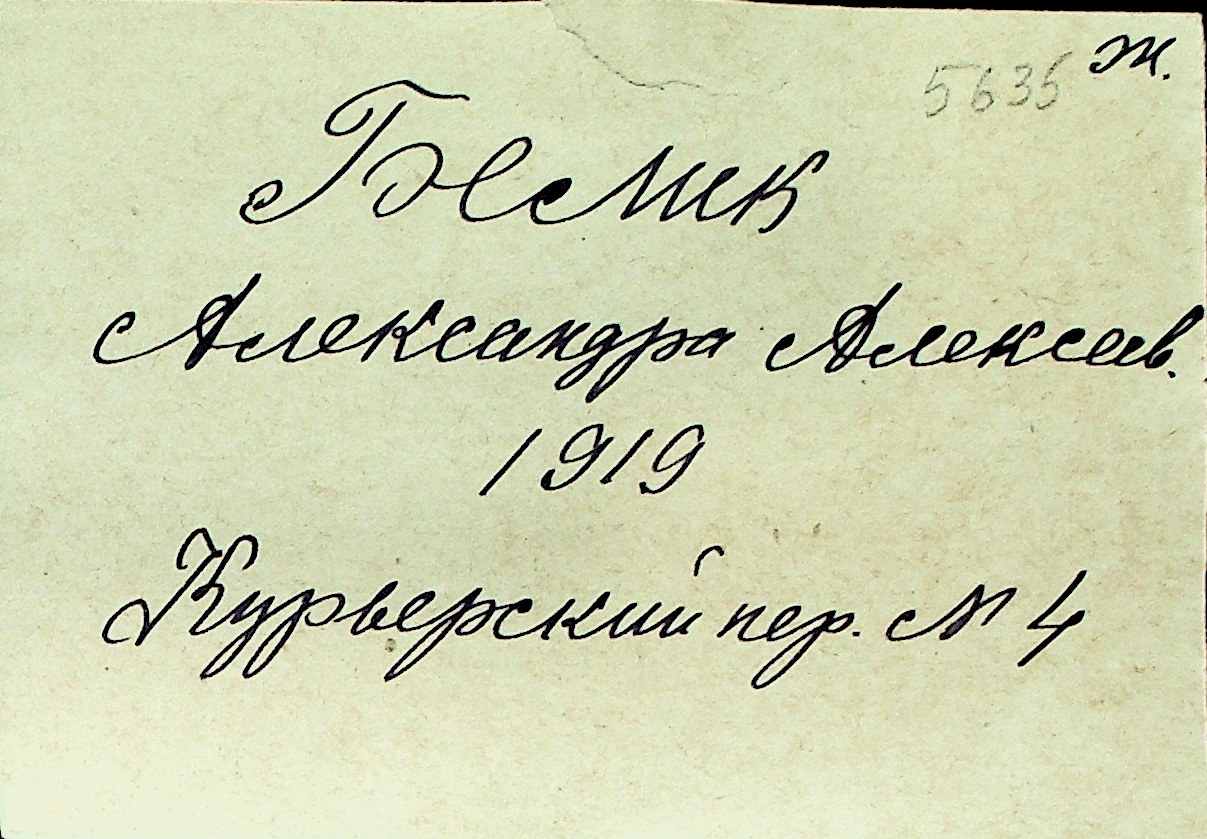 5635 Ж.
Александра Алексеев.
1919
Курьерский пер. № 4